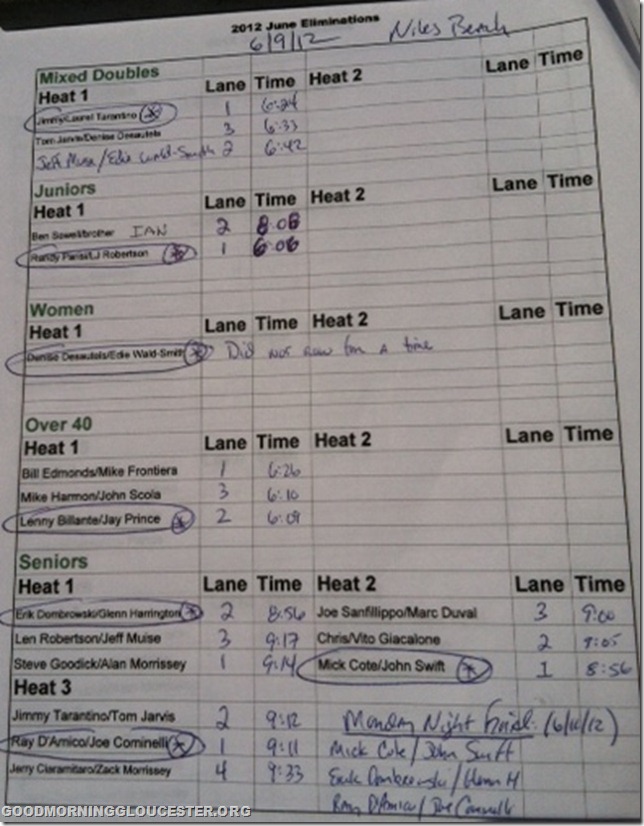 2012 June Eliminations
6/9/12 Niles Beach
Mixed Doubles
Heat 1 Lane Time Heat 2 Lane Time
Jimmy/Laurel Tarantino 1 6:24
Tom Jarvis/Denise Desautels 3 6:33
Jeff Muise/Edie Wald-Smith 2 6:42
Juniors
Heat 1 Lane Time Heat 2 Lane Time
Ben IAN 2 8:08
Randy Robertson 1 6:06
Women
Heat 1 Lane Time Heat 2 Lane Time
Denise Desautels/Edie Wald-Smith Did not row for a time
Over 40
Heat 1 Lane Time Heat 2 Lane Time
Bill Edmonds/Mike Frontiera 1 6:26
Mike Harmon/John Scola 3 6:10
Lenny Billante/Jay Prince 2 6:09
Seniors
Heat 1 Lane Time Heat 2 Lane Time
Erik Dombrowski/Glenn Harrington 2 8:56 Joe Sanfilippo/Marc Duval 3 9:00
Len Robertson/Jeff Muise 3 9:17 Chris/Vito Giacalone 2 9:05
Steve Goodick/Alan Morrissey 1 9:14 Mick Cote/John Swift 1 8:56
Heat 3
Jimmy Tarantino/Tom Jarvis 2 9:12 Monday Night Final: (6/11/12)
Ray D'Amico/Joe Cominelli 1 9:11 Mick Cote/John Swift
Jerry Ciaramitaro/Zack Morrissey 4 9:33 Erik Dombrowski/Glenn H
Ray D'Amico/Joe Cominelli
GOODMORNINGGLOUCESTER.ORG